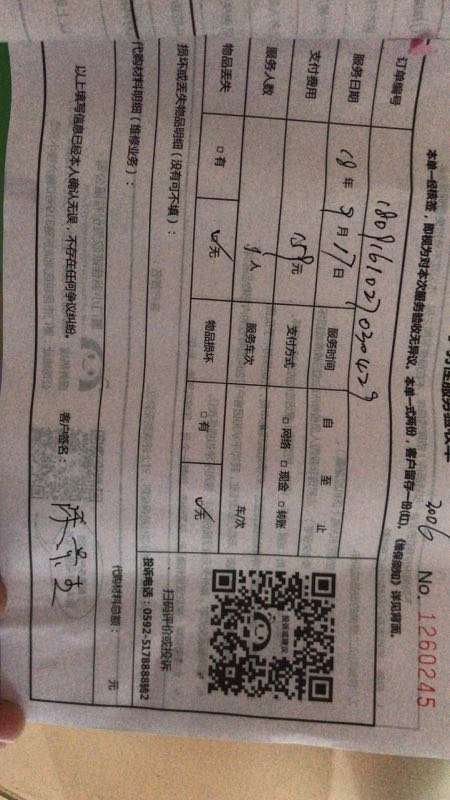 2006 No. 1260245
本单一经接签，即视为对本次服务验收无异议。本单一式两份，客户留存一份(红)。《维保须知》详见背面。
订单编号 1809161027030429
服务日期 18年9月17日 服务时间 自 至 止
支付费用 元 支付方式 □网络 □现金 □转账
服务人数 人 服务车次 车/次
物品丢失 □有 ☑无 物品损坏 □有 ☑无
损坏或丢失物品明细（没有可不填）：
扫码评价或投诉
投诉电话：0592-5178888转2
代购材料明细（维修业务）：
代购材料总额： 元
以上填写信息已经本人确认无误，不存在任何争议纠纷。
客户签名：